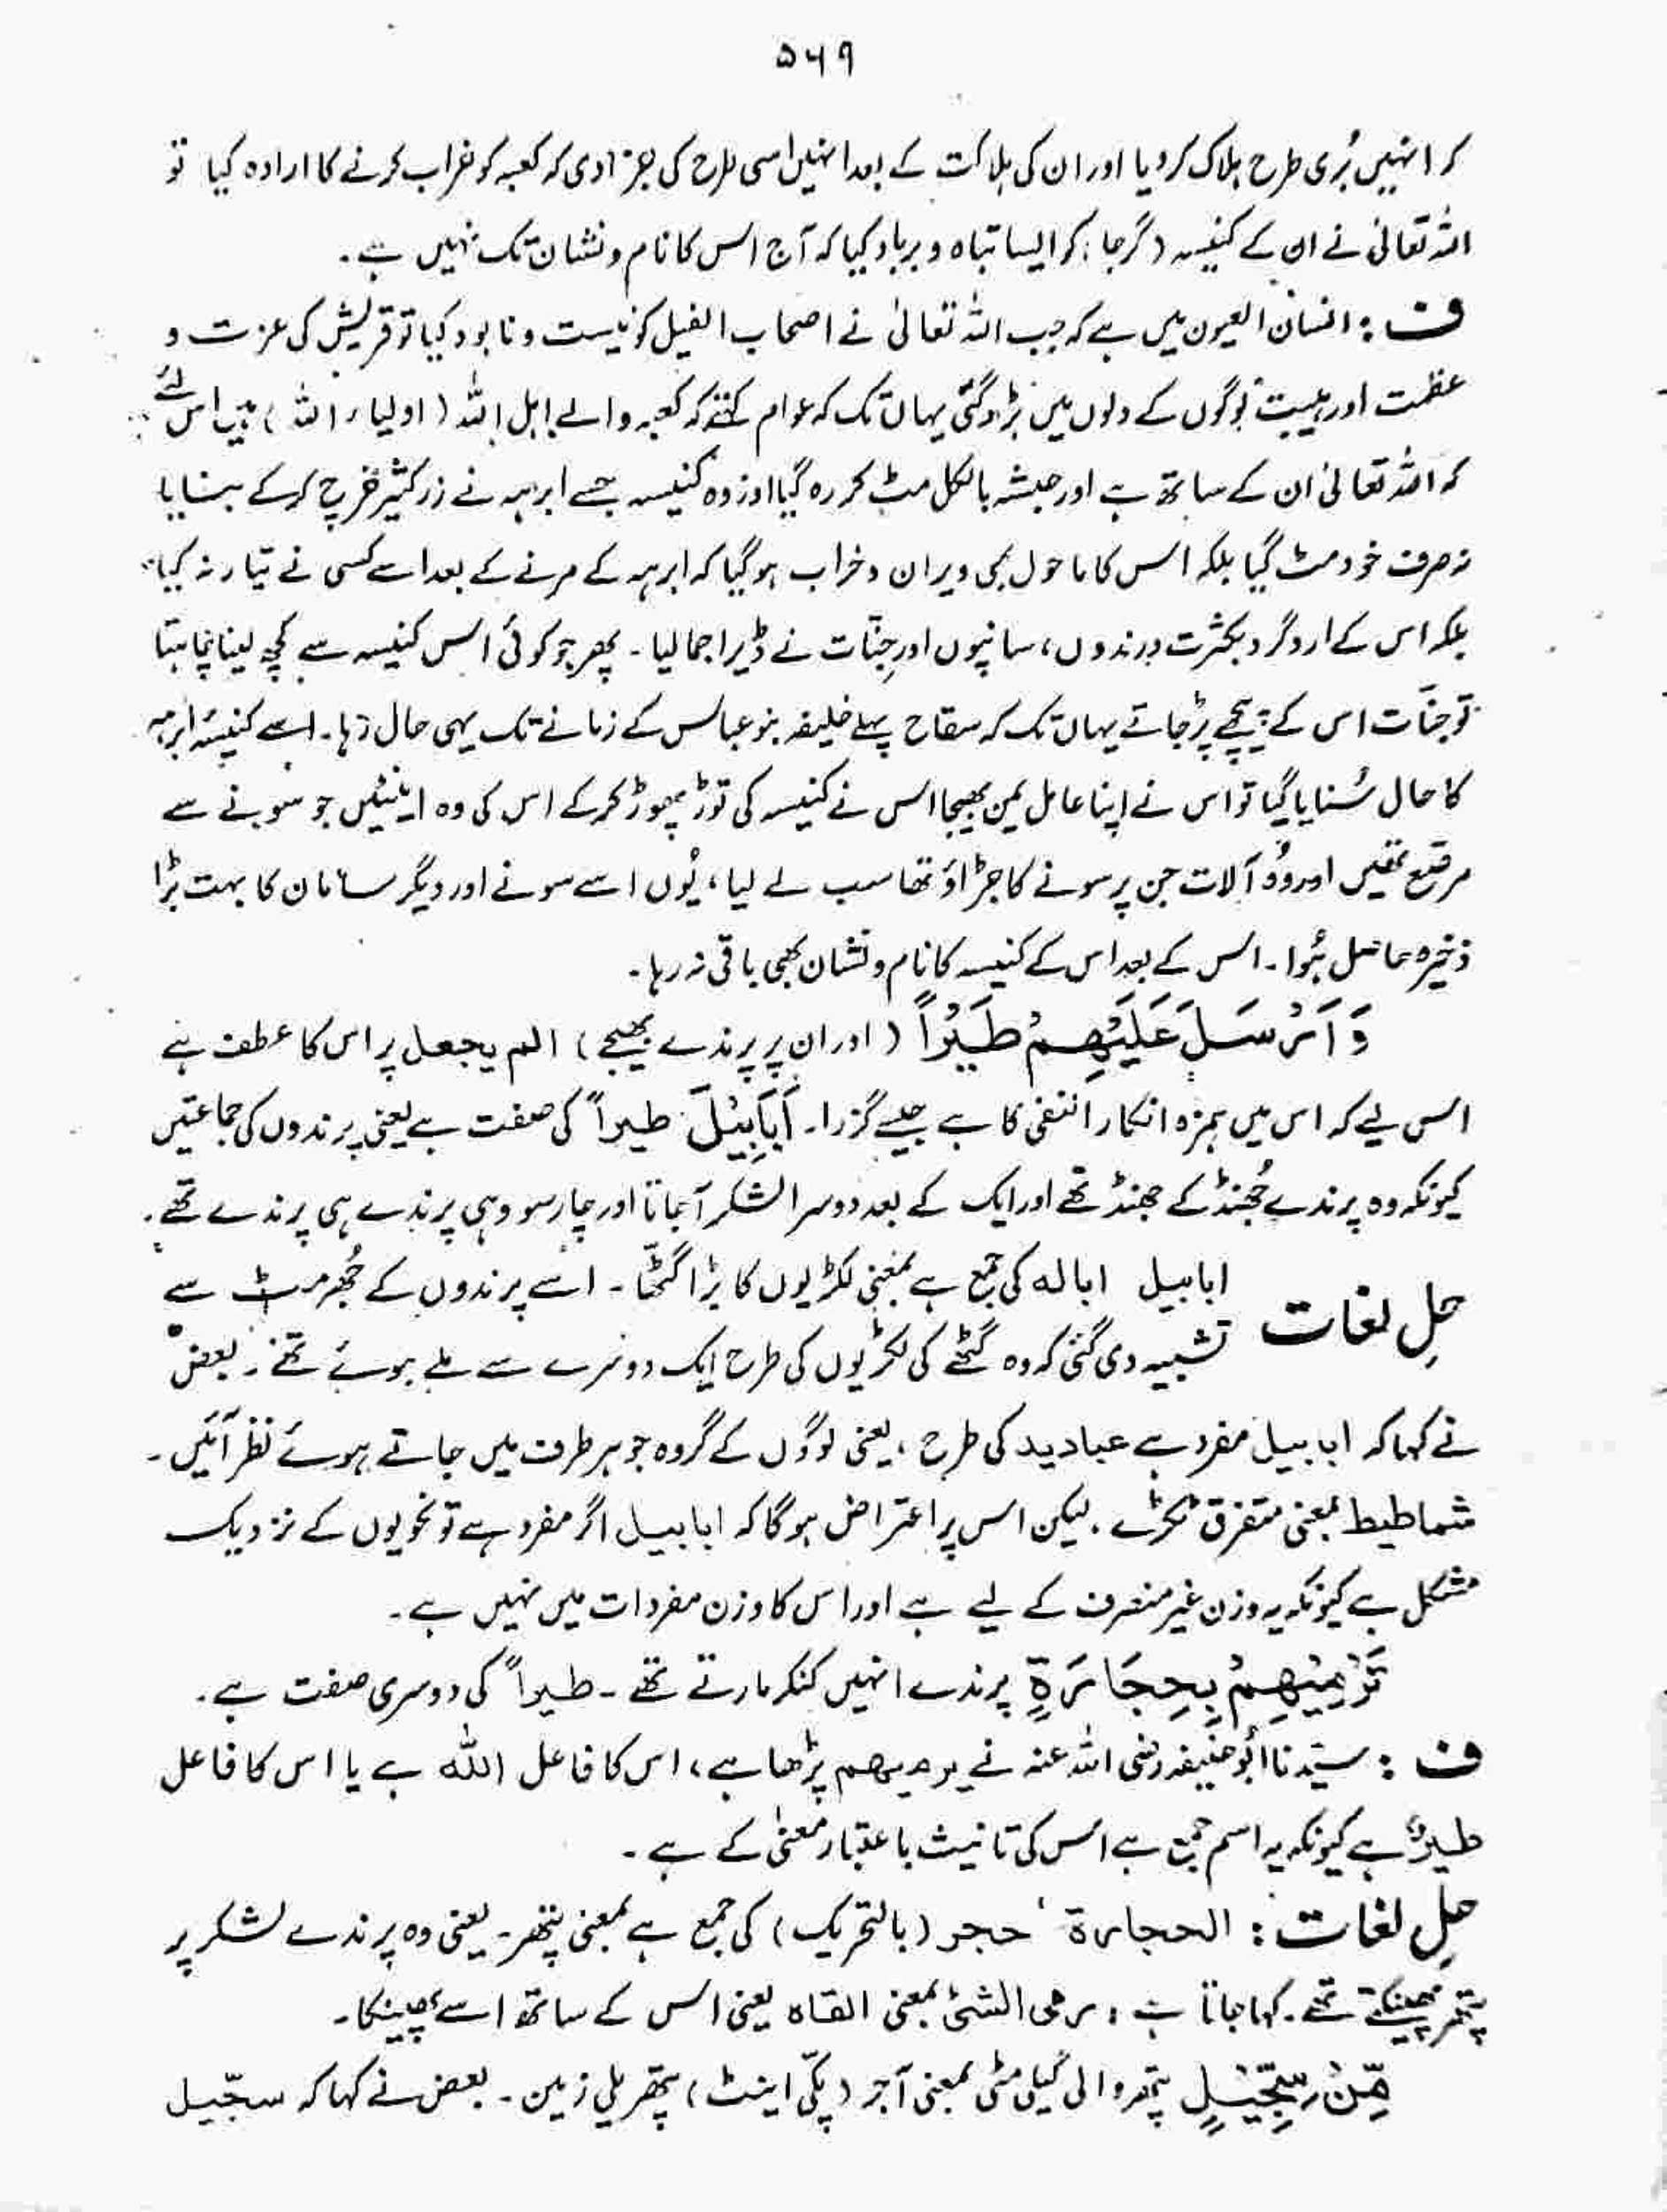 ۵۶۹
کر انہیں بُری طرح ہلاک کر دیا اور ان کی ہلاکت کے بعد انہیں اسی طرح کی جزا دی کہ کعبہ کو خراب کرنے کا ارادہ کیا تو
اللہ تعالیٰ نے ان کے کنیسہ (گرجا) کو ایسا تباہ و برباد کیا کہ آج اس کا نام و نشان تک نہیں ہے۔
ف : انسان العیون میں ہے کہ جب اللہ تعالیٰ نے اصحاب الفیل کو نیست و نابود کیا تو قریش کی عزت و
عظمت اور ہیبت لوگوں کے دلوں میں بڑھ گئی یہاں تک کہ عوام کہتے کہ کعبہ والے اہل اللہ (اولیاء اللہ) ہیں اس لئے
کہ اللہ تعالیٰ ان کے ساتھ ہے اور حبشہ بالکل مٹ کر رہ گیا اور وہ کنیسہ جسے ابرہہ نے زرکثیر خرچ کرکے بنایا
نہ صرف خود مٹ گیا بلکہ اس کا ماحول بھی ویران و خراب ہوگیا کہ ابرہہ کے مرنے کے بعد اسے کسی نے تیار نہ کیا
بلکہ اس کے اردگرد بکثرت درندوں، سانپوں اور جِنّات نے ڈیرا جما لیا۔ پھر جو کوئی اس کنیسہ سے کچھ لینا چاہتا
تو جنّات اس کے پیچھے پڑ جاتے یہاں تک کہ سفاح پہلے خلیفہ بنو عباس کے زمانے تک یہی حال رہا۔ اسے کنیسۂ ابرہہ
کا حال سُنایا گیا تو اس نے اپنا عامل یمن بھیجا اس نے کنیسہ کی توڑ پھوڑ کرکے اس کی وہ اینٹیں جو سونے سے
مرصّع تھیں اور وُہ آلات جن پر سونے کا جڑاؤ تھا سب لے لیا، یُوں اسے سونے اور دیگر سامان کا بہت بڑا
ذخیرہ حاصل ہُوا۔ اس کے بعد اس کے کنیسہ کا نام و نشان بھی باقی نہ رہا۔
وَ اَرْسَلَ عَلَیْھِمْ طَیْرًا (اور ان پر پرندے بھیجے) الم یجعل پر اس کا عطف ہے
اس لیے کہ اس میں ہمزہ انکار النفی کا ہے جیسے گزرا۔ اَبَابِیْلَ طیراً کی صفت ہے یعنی پرندوں کی جماعتیں
کیونکہ وہ پرندے جُھنڈ کے جھنڈ تھے اور ایک کے بعد دوسرا لشکر آجاتا اور چار سو وہی پرندے ہی پرندے تھے۔
حلِ لغات ابابیل ابالہ کی جمع ہے بمعنی لکڑیوں کا بڑا گٹھّا۔ اسے پرندوں کے جُھرمٹ سے
تشبیہ دی گئی کہ وہ گٹھے کی لکڑیوں کی طرح ایک دوسرے سے ملے ہوئے تھے۔ بعض
نے کہا کہ ابابیل مفرد ہے عبادید کی طرح، یعنی لوگوں کے گروہ جو ہر طرف میں جاتے ہوئے نظر آئیں۔
شماطیط بمعنی متفرق ٹکڑے۔ لیکن اس پر اعتراض ہوگا کہ ابابیل اگر مفرد ہے تو نحویوں کے نزدیک
مشکل ہے کیونکہ یہ وزن غیر منصرف کے لیے ہے اور اس کا وزن مفردات میں نہیں ہے۔
تَرْمِیْھِمْ بِحِجَارَۃٍ پرندے انہیں کنکر مارتے تھے۔ طیراً کی دوسری صفت ہے۔
ف : سیّدنا ابُوحنیفہ رضی اللہ عنہ نے یرمیھم پڑھا ہے، اس کا فاعل اللہ ہے یا اس کا فاعل
طیرًا ہے کیونکہ یہ اسم جمع ہے اس کی تانیث باعتبار معنیٰ کے ہے۔
حلِ لغات : الحجارۃ ، حجر (بالتحریک) کی جمع ہے بمعنی پتھر۔ یعنی وہ پرندے لشکر پر
پتھر پھینکتے تھے۔ کہا جاتا ہے : رمی الشئ بمعنی القاہ یعنی اس کے ساتھ اسے پھینکا۔
مِّنْ سِجِّیْلٍ پتھر والی گیلی مٹی بمعنی آجر (پکّی اینٹ) پتھریلی زمین۔ بعض نے کہا کہ سجّیل